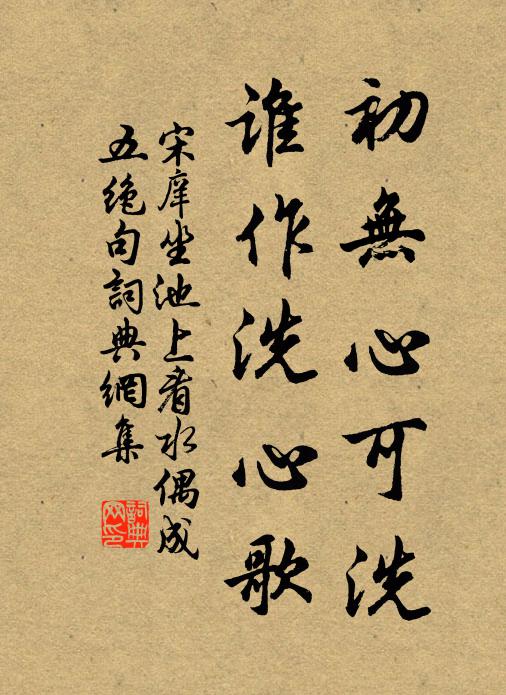 初無心可洗
誰作洗心歌
宋庠坐池上看水偶成
五絶句詞典網集
詞典
网印